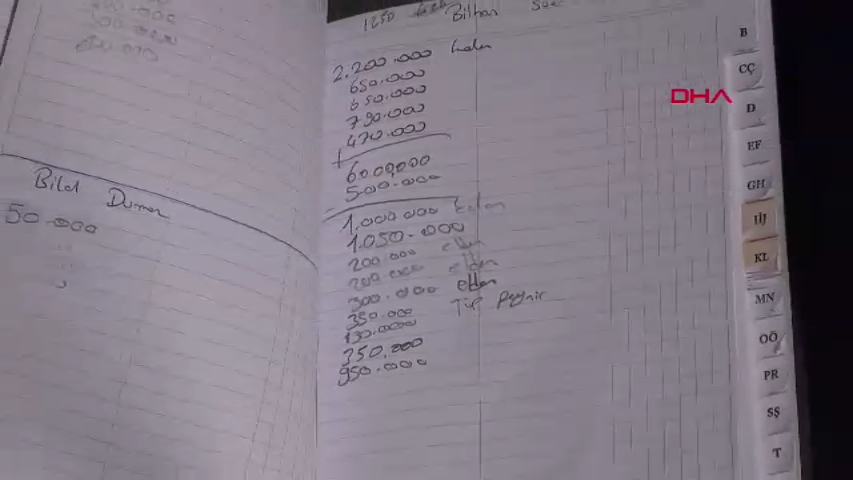 Bilal Duman
50.000
1250
Bilhan
2.200.000
650.000
650.000
790.000
470.000
+
60.00.000
- 500.000
1.000.000
1.050.000
200.000 elden
200.000 elden
300.000 elden
350.000 Tip peynir
130.000
350.000
950.000
DHA
B
CÇ
D
EF
GH
IİJ
KL
MN
OÖ
PR
SŞ
T